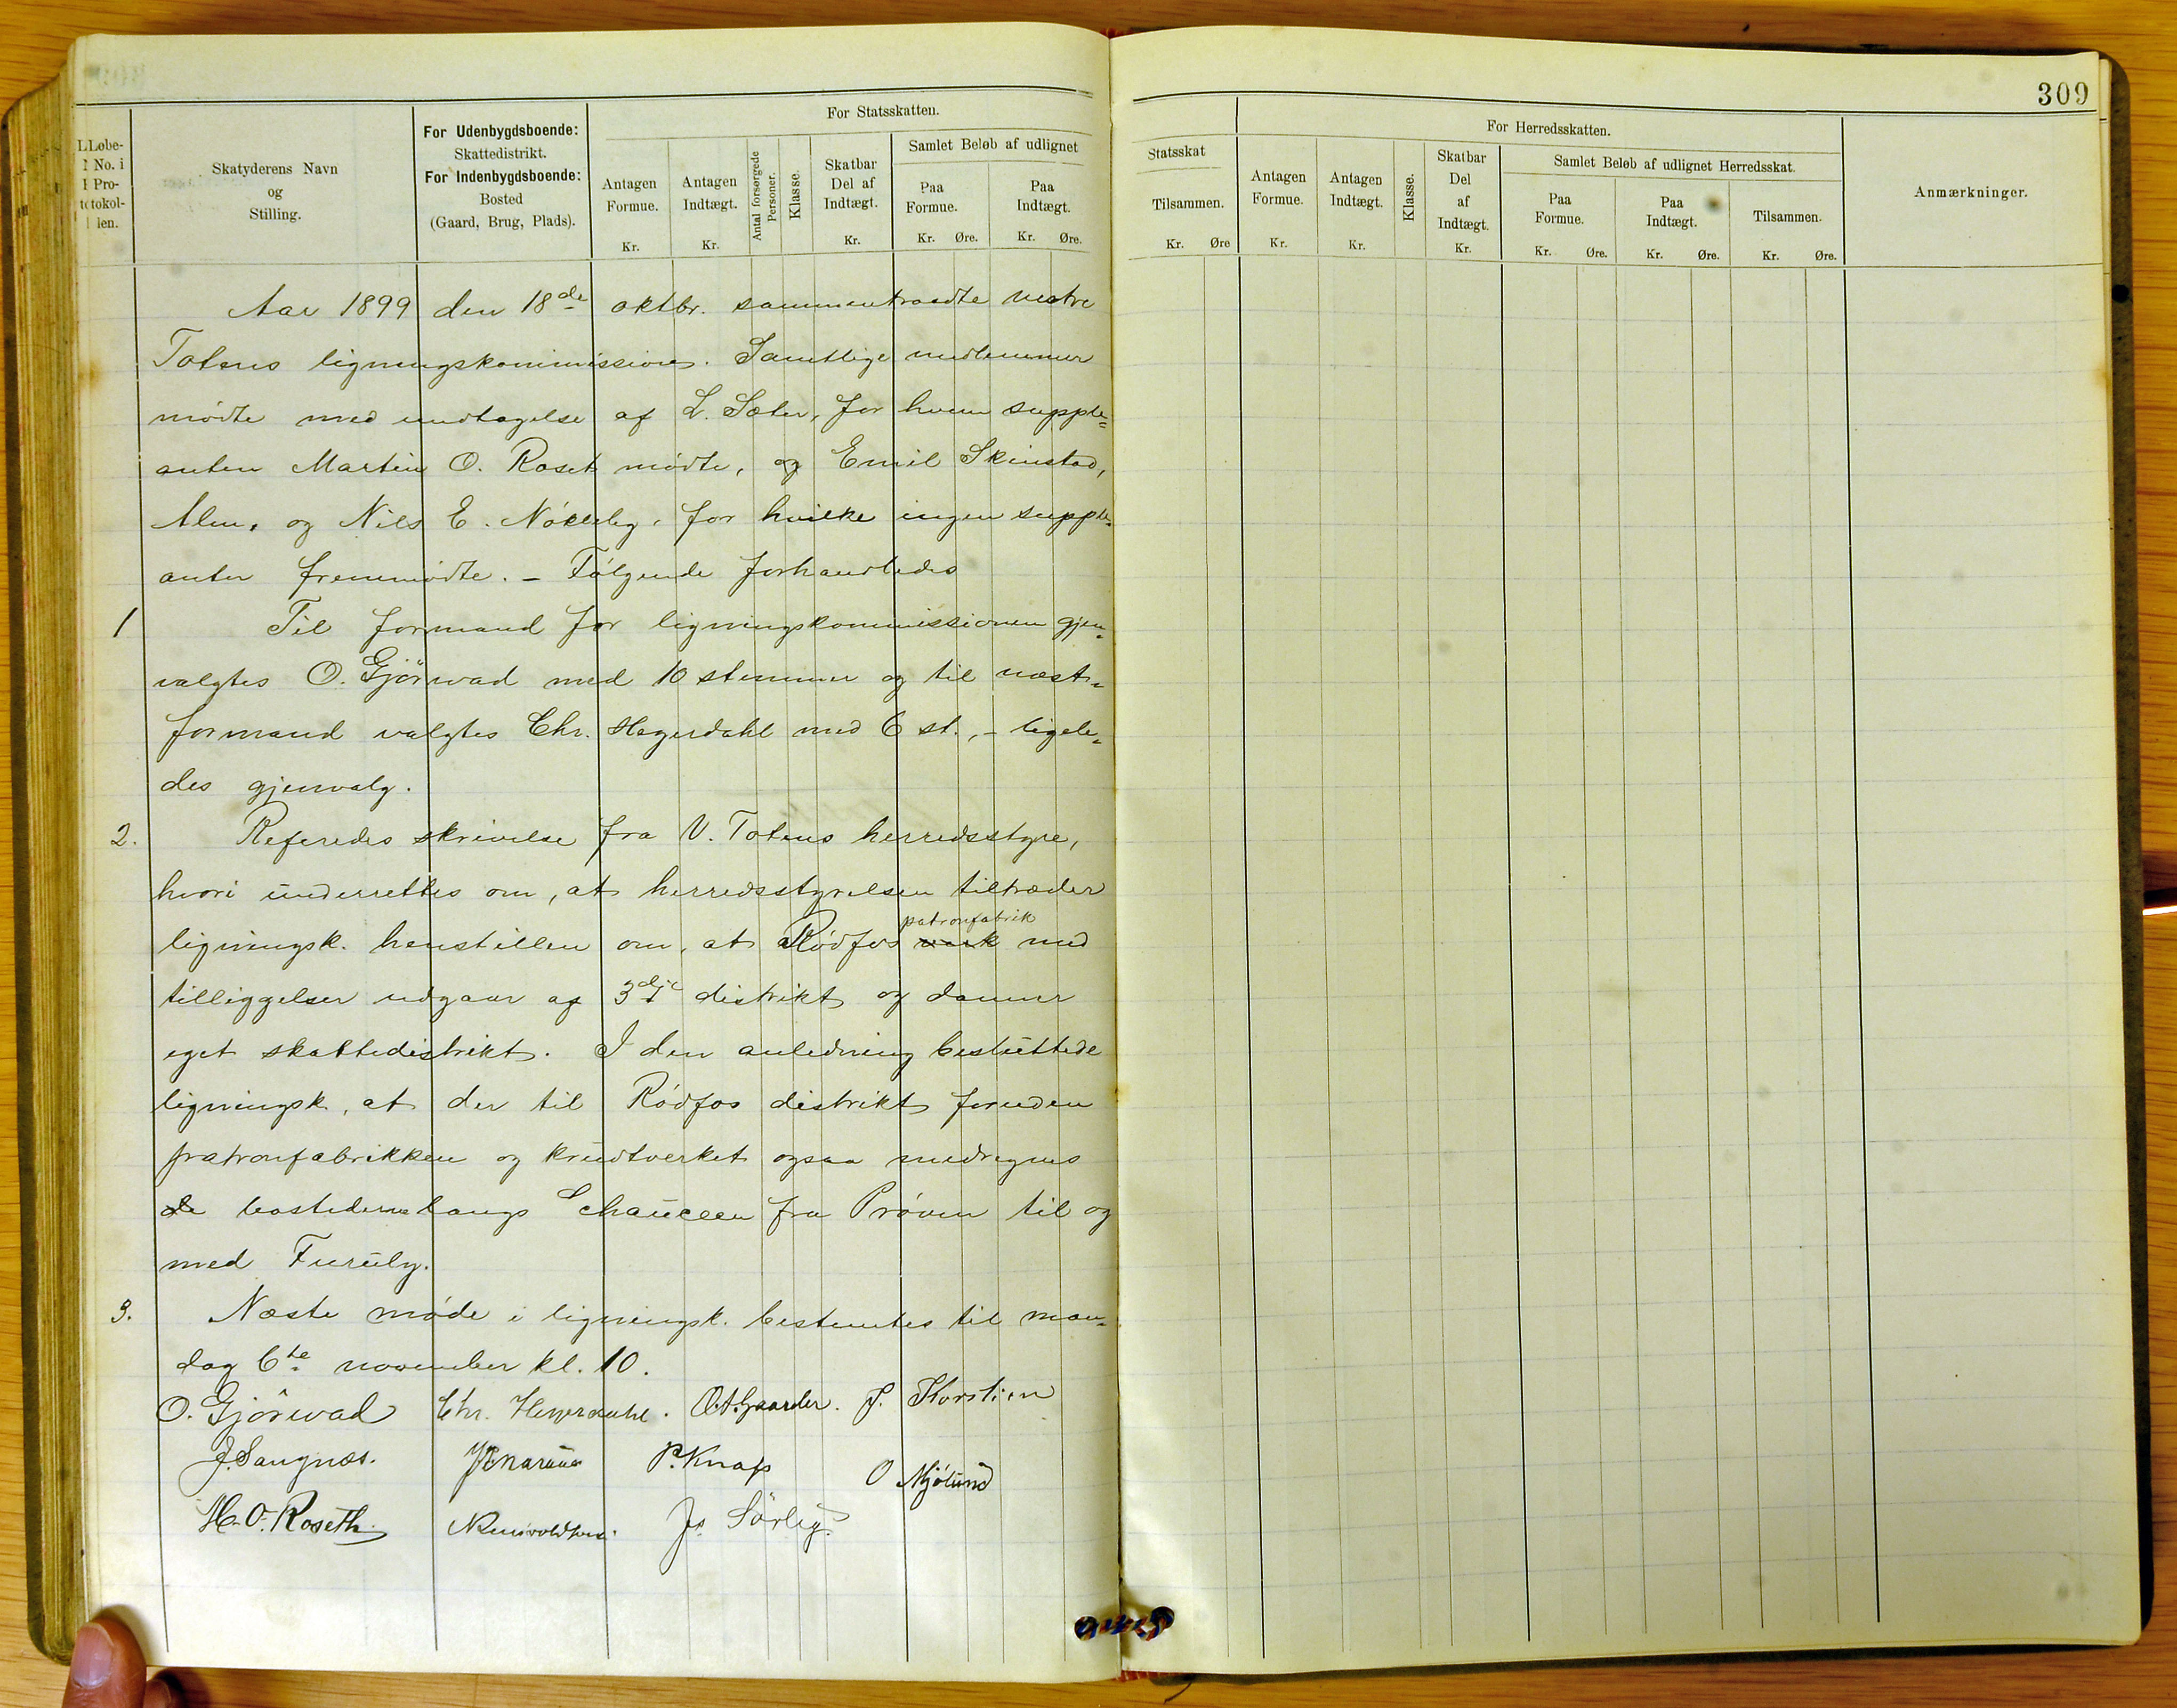 309
Løbe-
No. i
Pro-
tokol-
len.
Skatyderens Navn
og
Stilling.
For Udenbygdsboende:
Skattedistrikt.
For Indenbygdsboende:
Bosted
(Gaard, Brug, Plads).
For Statsskatten.
Antagen
Formue.
Kr.
Antagen
Indtægt.
Kr.
Antal forsørgede
Personer.
Klasse.
Skatbar
Del af
Indtægt.
Kr.
Samlet Beløb af udlignet
Paa
Formue.
Kr. Øre.
Paa
Indtægt.
Kr. Øre.
Statsskat
Tilsammen.
Kr. Øre
For Herredsskatten.
Antagen
Formue.
Kr.
Antagen
Indtægt.
Kr.
Klasse.
Skatbar
Del
af
Indtægt.
Kr.
Samlet Beløb af udlignet Herredsskat.
Paa
Formue.
Kr. Øre.
Paa
Indtægt.
Kr. Øre.
Tilsammen.
Kr. Øre.
Anmærkninger.
Aar 1899 den 18de oktbr. sammentraadte vestre
Totens ligningskommission. Samtlige medlemmer
mødte med undtagelse af L. Sæter, for hvem supple=
anten Martin O. Roset mødte, og Emil Skinstad,
Alm, og Nils E. Nøkleby, for hvilke ingen supple=
anter fremmødte. – Følgende forhandledes
1 Til formand for ligningskommissionen gjen=
valgtes O. Gjørwad med 10 stemmer og til næst=
formand valgtes Chr. Heyerdahl med 6 st., – ligele=
des gjenvalg.
2. Referedes skrivelse fra V. Totens herredsstyre,
hvori underrettes om, at herredsstyrelsen tiltræder
patronfabrik
ligningsk. henstillen om, at Rødfos værk med
tilliggelser udgaar af 3dje distrikt og danner
eget skattedistrikt. I den anledning besluttede
ligningsk, at der til Rødfos distrikt foruden
patronfabrikken og krudtverket ogsaa medregnes
de bostederne langs Chauceen fra Prøven til og
med Furuly.
3. Næste møde i ligningsk. bestemtes til man=
dag 6te november kl. 10.
O. Gjørwad Chr. Heyerdahl. O.A. Gaarder. J. Korslien
J. Sangnæs. P. Knap O Mjølund
M. O. Roseth Js. Sörlig.